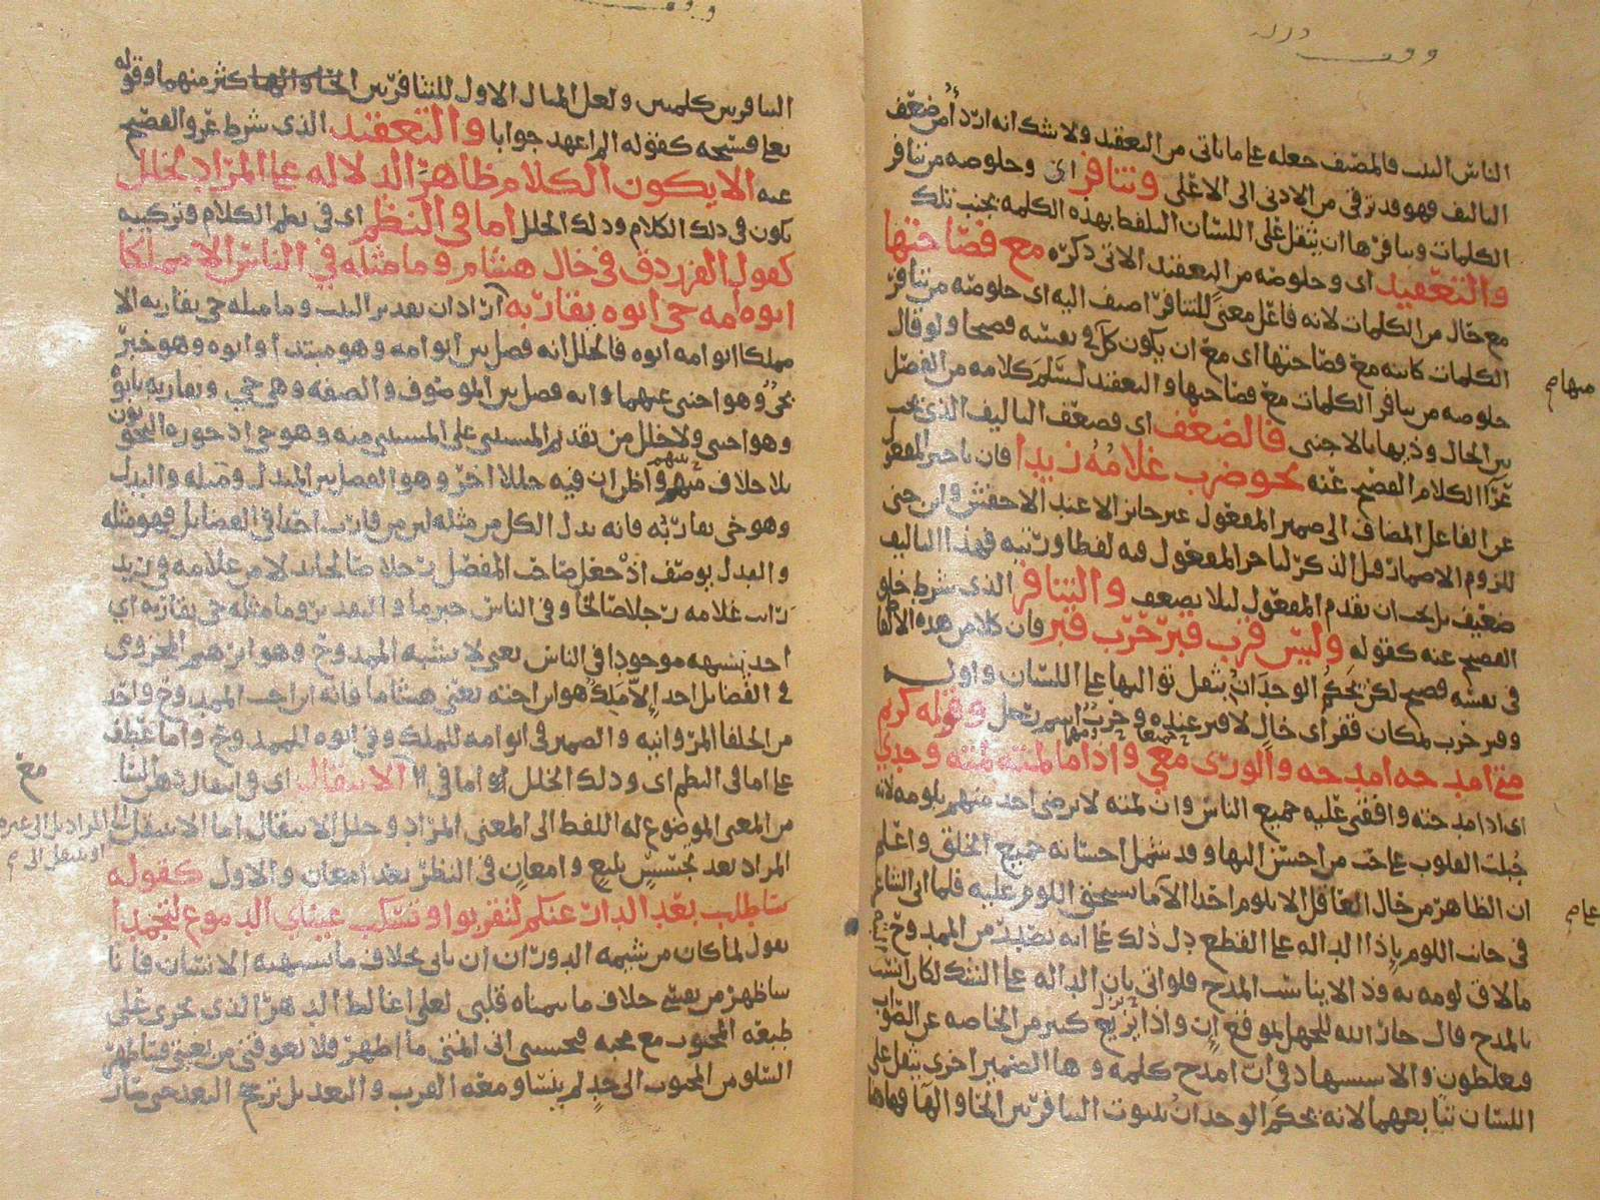 الناس البيت فالمصنف جعله على ما ياتي من التعقيد ولا شك انه اردأ من ضعف
التاليف فهو قد ترقى من الادنى الى الاعلى وتنافر اي وخلوصه من تنافر
الكلمات وتنافرها ان يثقل على اللسان التلفظ بهذه الكلمة بجنب تلك
والتعقيد اي وخلوصه من التعقيد الاتي ذكره مع فصاحتها
مع حال من الكلمات لانه فاعل معنى للتنافر اضيف اليه اي خلوصه من تنافر
الكلمات كاينة مع فصاحتها اي مع ان يكون كل في نفسه فصيحا ولو قال
خلوصه من تنافر الكلمات مع فصاحتها والتعقيد لسلم كلامه من الفصل
بين الحال وذيها بالاجنبي فالضعف اي فضعف التاليف الذي يجب
عرا الكلام الفصيح عنه نحو ضرب غلامه زيدا فان تاخير المفعول
عن الفاعل المضاف الى ضمير المفعول غير جائز الا عند الاخفش وابن جني
للزوم الاضمار قبل الذكر لتاخر المفعول فيه لفظا ورتبة فهذا التاليف
ضعيف بل يجب ان يقدم المفعول ليلا يضعف والتنافر الذي شرط خلو
الفصيح عنه كقوله وليس قرب قبر حرب قبر فان كلا من هذه الالفاظ
في نفسه فصيح لكن يحكم الوجدان بثقل تواليها على اللسان واوله
وقبر حرب بمكان قفر اي خال لا قبر عنده وحرب اسم رجل وقوله كريم
متى امدحه امدحه والورى معي واذا ما لمته لمته وحدي
اي اذا مدحته وافقني عليه جميع الناس وان لمته لا يرضى احد منهم بلومه لانه
جبلت القلوب على حب من احسن اليها وقد شمل احسانه جميع الخلق واعلم
ان الظاهر من حال العاقل الا يلوم احدا الا ما يستحق اللوم عليه فلما اتى الشاعر
في جانب اللوم باذا الدالة على القطع دل ذلك على انه
ما لاق لومه به وذا لا يناسب المدح فلو اتى بان الدالة على الشك لكان انسب
بالمدح قال جار الله للجهل بموقع ان واذا يزيغ كثير من الخاصة عن الصواب
فيغلطون والاستشهاد في ان امدح كلمة وها الضمير اخرى يثقل على
اللسان تتابعهما لانه يحكم الوجدان بثبوت التنافر بين الحا والها فهاهنا
منهام
التنافر بين كلمتين ولعل المثال الاول للتنافر بين اكثر منهما وقوله
تعالى فسبحه كقوله الم اعهد جوابا والتعقيد الذي شرط عرو الفصيح
عنه الا يكون الكلام ظاهر الدلالة على المراد لخلل
يكون في ذلك الكلام وذلك الخلل اما في النظم اي في نظم الكلام وتركيبه
كقول الفرزدق في خال هشام وما مثله في الناس الا مملكا
ابو امه حي ابوه يقاربه اراد ان تقدير البيت وما مثله حي يقاربه الا
مملكا ابو امه ابوه فالخلل انه فصل بين ابو امه وهو مبتدا وابوه وهو خبر
بحي وهو اجنبي عنهما وانه فصل بين الموصوف والصفة وهي حي ويقاربه بابوه
وهو اجنبي ولا خلل من تقديم المستثنى على المستثنى منه وهو حي اذ جوزه النحويون
بلا خلاف بينهم واظن ان فيه خللا اخر وهو الفصل بين المبدل ومثله والبدل
وهو حي يقاربه فانه بدل الكل من مثله اي من قارب احدا في الفضايل فهو مثله
والبدل يوصف اذ جعل صاحب المفضل رجلا صالحا بدلا من غلامه في زيد
رايت غلامه رجلا صالحا وفي الناس خبر ما والتقدير وما مثله حي يقاربه اي
احد يشبهه موجودا في الناس يعني لا يشبه الممدوح وهو ابرهيم المخزومي
في الفضايل احد الا ملك هو ابن اخته يعني هشاما فانه ابن اخت الممدوح واحد
من الخلفا المروانية والضمير في ابو امه للملك وفي ابوه للممدوح واما عطف
على اما في النظم اي وذلك الخلل اما في الانتقال اي في انتقال ذهن
من المعنى الموضوع له اللفظ الى المعنى المراد وخلل الانتقال اما الا ينتقل
المراد بعد تجسس بليغ وامعان في النظر بعد امعان والاول كقوله
ساطلب بعد الدار عنكم لتقربوا وتسكب عيناي الدموع لتجمدا
يقول لما كان من شيمة الدوران ان ياتي بخلاف ما يشتهيه الانسان فانا
ساظهر من نفسي خلاف ما يتمناه قلبي لعلي اغالط الدهر الذي يجري على
طبعه المحبوب مع محبه فيحسب اني اتمنى ما اظهر فلا يعوقني من بغيتي فيظهر